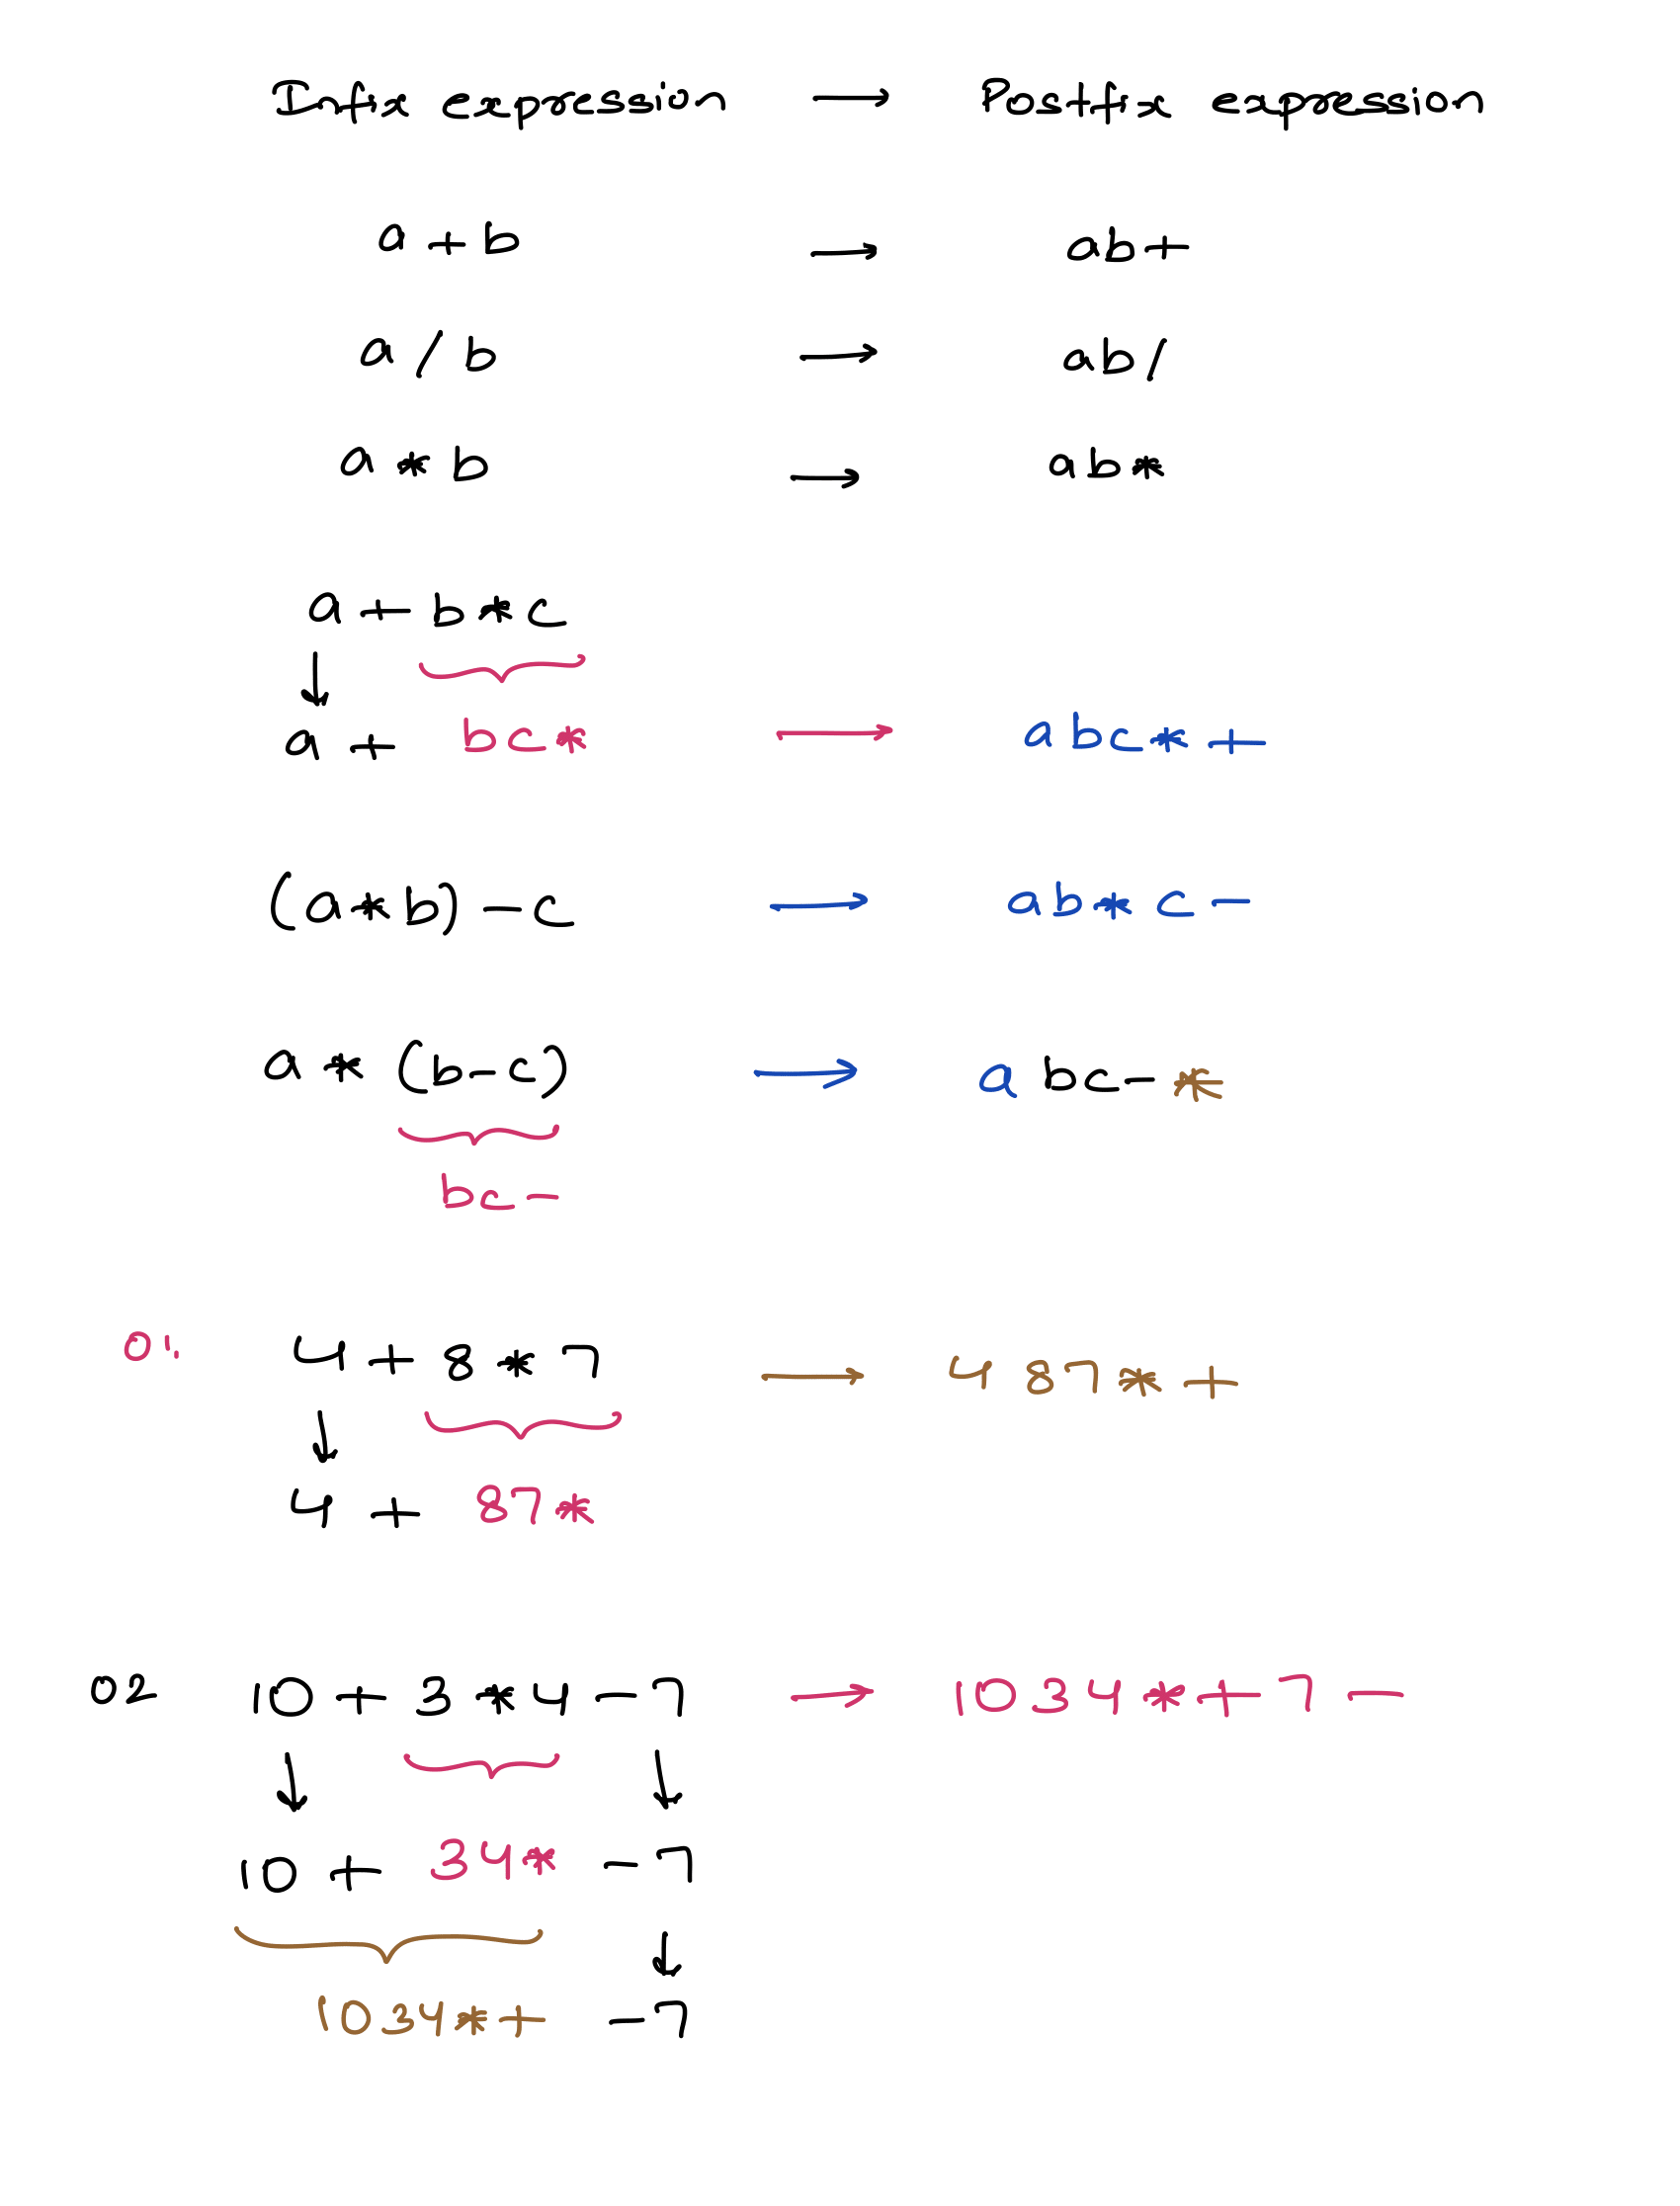 Infix expression → Postfix expression
a + b → ab+
a / b → ab/
a * b → ab*
a + b * c
↓
a + bc* → abc*+
(a*b) - c → ab*c-
a * (b-c) → abc-*
bc-
01. 4 + 8 * 7 → 4 87*+
↓
4 + 87*
02 10 + 3 * 4 - 7 → 10 34*+7-
↓ ↓
10 + 34* - 7
↓
10 34*+ - 7